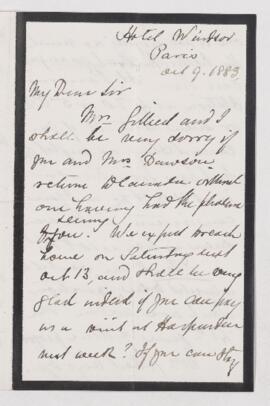 Hotel Windsor
Paris
Oct 9. 1883
My Dear Sir
Mrs. Gilbert and I
shall be very sorry if
you and Mrs Dawson
return to Canada without
our having had the pleasure
seeing
of you. We expect to reach
home on Saturday next
Oct 13, and shall be very
glad indeed if you can pay
us a visit at Harpenden
next week? If you can stay